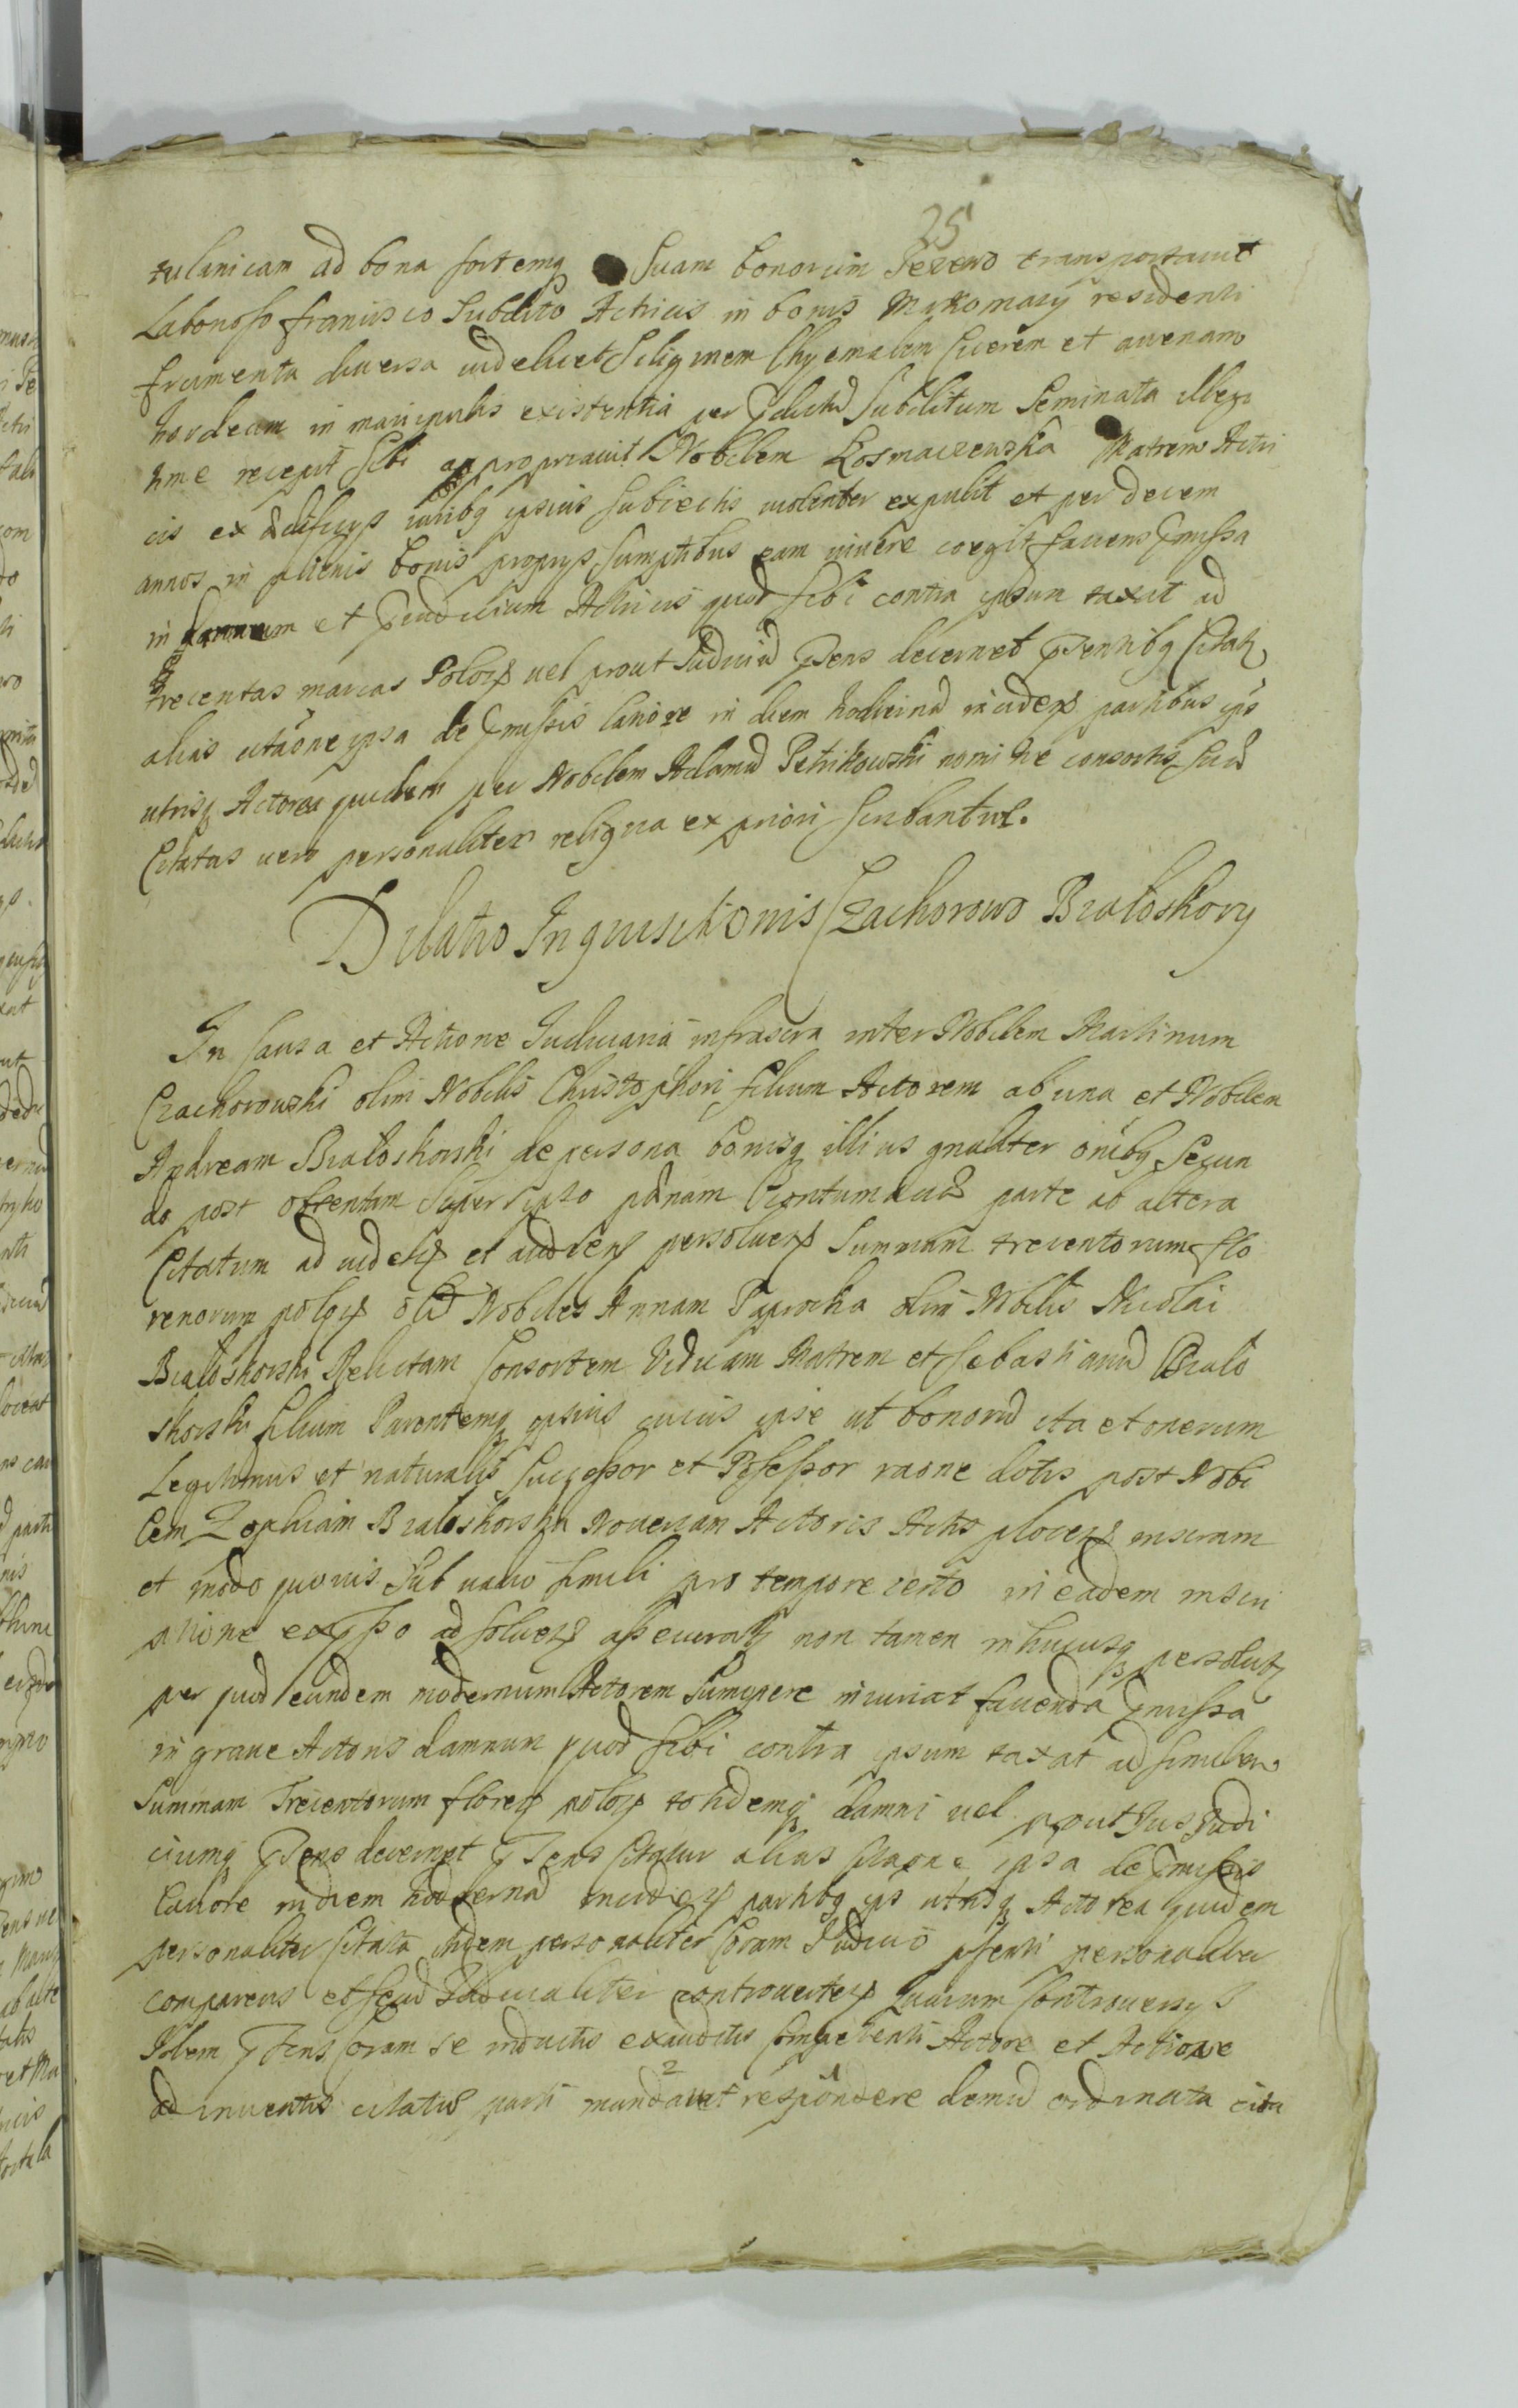 25
tulanicam ad bona sortemq suam bonorum Pezewo transportauit
Laborioso francisco Subdito Actricis in bonis Mikomaty residenti
frumenta diuersa uidelicet Siliginem Chyemalem Cicerem et auenam
hordeum in manipulis existentia per Subditum Seminata illegi
time recepit sibi appropriauit Nobilem Kosmaczewska Matrem Actri
cis ex ædificys iuribq ipsius subiectis uiolenter expulit et per decem
annos in alienis bonis proprys sumptibus eam uiuere coegit faciens pmissa
in damnum et pudicium Actricis quod sibi contra ipsum taxat ad
trecentas marcas Polos uel prout Judiciu pns decernet pntibq Citat
alias citaone ipsa de pmissis lanore in diem hodierna incidens partibus ips
utrisq Actorea quidem per Nobilem Adamu Petrikowski nomine consortis sua
Citatas uero personaliter reliqua ex priori scribantur.
Dilatio Inquisitionis Czachorowo Białoskory
In causa et Actione Judiciaria infrascra inter Nobilem Martinum
Czachorowski olim Nobilis Christophori filium Actorem ab una et Nobilem
Andream Białoskorski de persona bonisq illius gnaliter oibq Secun
do post obtentam super ipso pænam Contumaciæ parte ab altera
Citatum ad uidens et audiens persoluens Summam trecentorum flo
renorum polos Nobiles Annam Paprocka olim Nobilis Nicolai
Białoskorski Relictam Consortem Viduam Matrem et Sebastianu Biało
skorski filium Parentemq ipsius cuius ipse ut bonoru ita et onerum
Legitimus et naturalis Successor et Possessor raone dotis post Nobi
lem Zophiam Białoskorska Nouercam Actoris Actis plocens inscram
et modo quouis Sub uadio simili pro tempore certo in eadem inscri
ptione ad soluens assecurat non tamen inhucusq persolut
per quod eundem modernum Actorem Sumopere iniuriat faciendo pmissa
in graue Actoris damnum quod sibi contra ipsum taxat ad similem
Summam Trecentorum floren polos totidemq damni uel prout Jus Judi
ciumq pns decernet pns Citatur alias citaone ipsa de pmissis
lanore in diem hodierna incidens partibq ips utrisq Actorea quidem
personaliter Citata itidem personaliter Coram Judicio pnti personaliter
comparens et secu Judicialiter controuertens Quarum Controuersys
Idem pns Coram se inductis exauditis Competenti Actore et Actione
ad inuentis citatis parti mandauit respondere demu ordinata cita